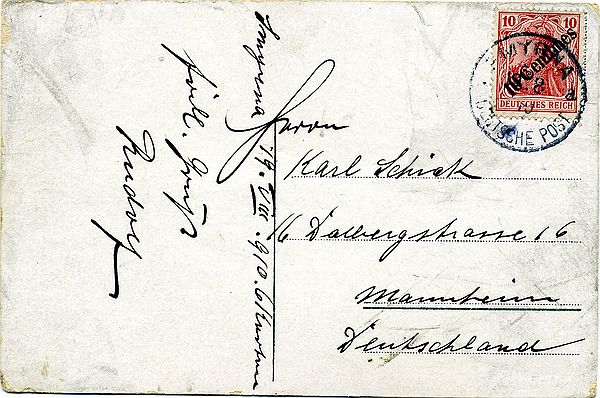 Smyrna 19. VIII. 910. 6 Karten
frdl. Gruß
Rudolf
Herrn
Karl Schick
16 Dalbergstrasse 16
Mannheim
Deutschland
10 10
10 Centimes
DEUTSCHES REICH
SMYRNA
DEUTSCHE POST